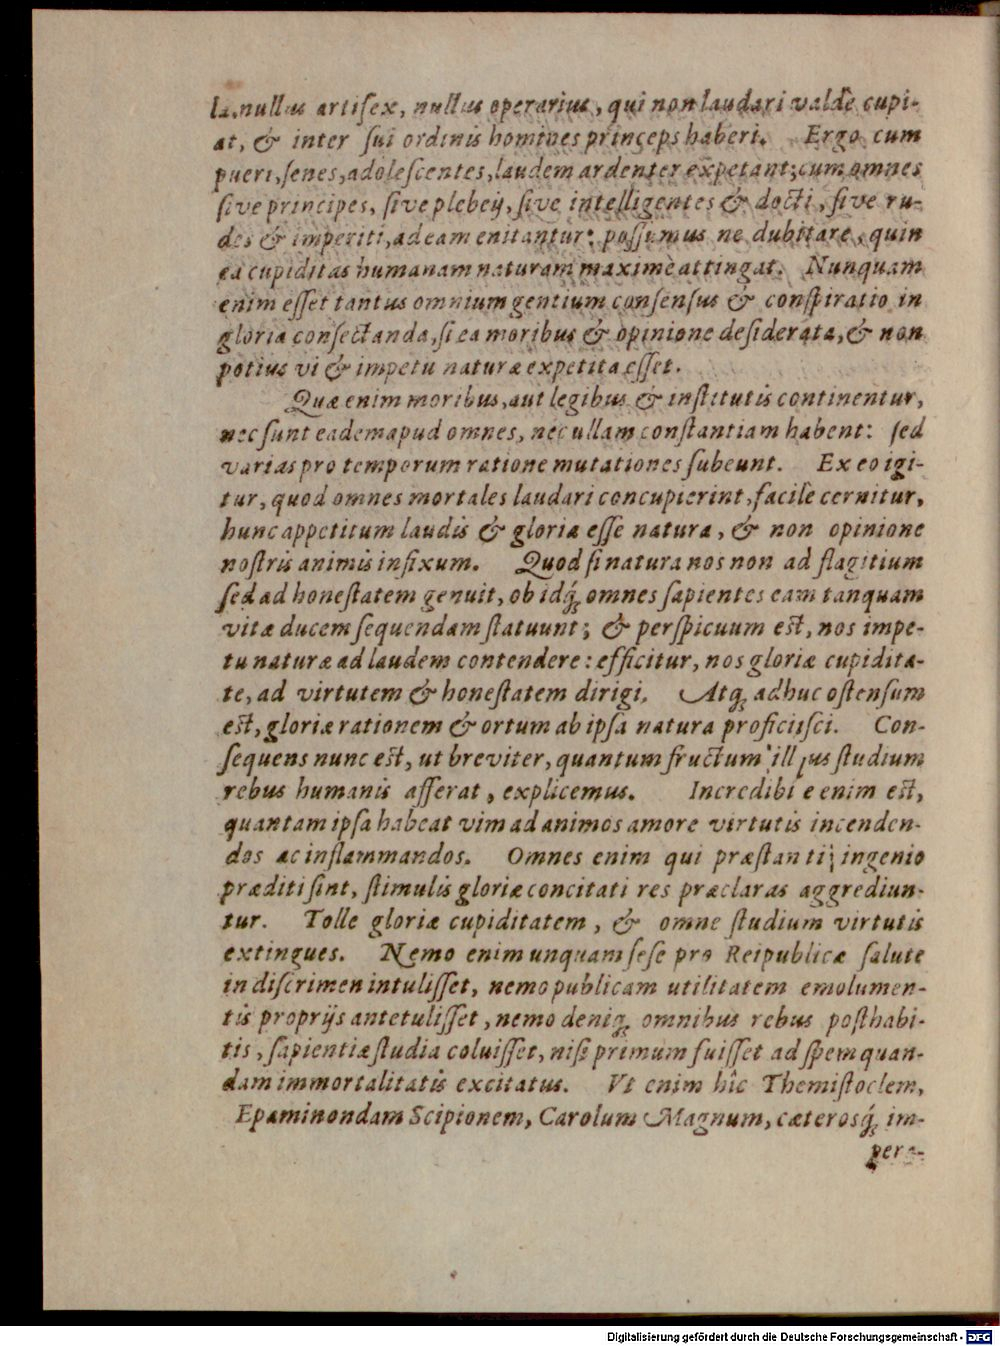 la, nullus artifex, nullus operarius, qui non laudari valdè cupi-
at, & inter sui ordinis homines princeps haberi. Ergo cum
pueri, senes, adolescentes, laudem ardenter expetant; cum omnes
sive principes, sive plebeij, sive intelligentes & docti, sive ru-
des & imperiti, ad eam enitantur: possumus ne dubitare, quin
ea cupiditas humanam naturam maximè attingat. Nunquam
enim esset tantus omnium gentium consensus & conspiratio in
gloria consectanda, si ea moribus & opinione desiderata, & non
potius vi & impetu naturæ expetita esset.
Quæ enim moribus, aut legibus & institutis continentur,
nec sunt eadem apud omnes, nec ullam constantiam habent: sed
varias pro temporum ratione mutationes subeunt. Ex eo igi-
tur, quod omnes mortales laudari concupierint, facilè cernitur,
hunc appetitum laudis & gloriæ esse natura, & non opinione
nostris animis infixum. Quod si natura nos non ad flagitium
sed ad honestatem genuit, ob idq́; omnes sapientes eam tanquam
vitæ ducem sequendam statuunt; & perspicuum est, nos impe-
tu naturæ ad laudem contendere: efficitur, nos gloriæ cupidita-
te, ad virtutem & honestatem dirigi. Atq; adhuc ostensum
est, gloriæ rationem & ortum ab ipsa natura proficiisci. Con-
sequens nunc est, ut breviter, quantum fructum illius studium
rebus humanis afferat, explicemus. Incredibi e enim est,
quantam ipsa habeat vim ad animos amore virtutis incenden-
dos ac inflammandos. Omnes enim qui præstanti ingenio
præditi sint, stimulis gloriæ concitati res præclaras aggrediun-
tur. Tolle gloriæ cupiditatem, & omne studium virtutis
extingues. Nemo enim unquam sese pro Reipublicæ salute
in discrimen intulisset, nemo publicam utilitatem emolumen-
tis proprijs antetulisset, nemo deniq; omnibus rebus posthabi-
tis, sapientiæ studia coluisset, nisi primum fuisset ad spem quan-
dam immortalitatis excitatus. Vt enim hîc Themistoclem,
Epaminondam Scipionem, Carolum Magnum, cæterosq́; im-
pera-
Digitalisierung gefördert durch die Deutsche Forschungsgemeinschaft - DFG